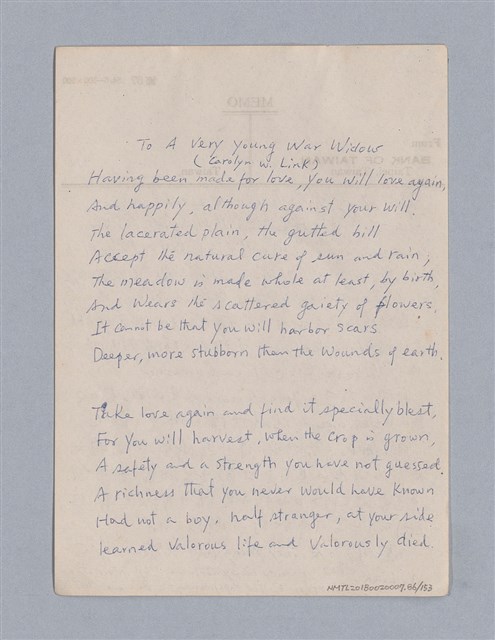 To A Very Young War Widow
(Carolyn W. Link)
Having been made for love, you will love again,
And happily, although against your will.
The lacerated plain, the gutted hill
Accept the natural cure of sun and rain;
The meadow is made whole at least, by birth,
And wears the scattered gaiety of flowers.
It cannot be that you will harbor scars
Deeper, more stubborn than the wounds of earth.
Take love again and find it specially blest,
For you will harvest, when the crop is grown,
A safety and a strength you have not guessed.
A richness that you never would have known
Had not a boy, half stranger, at your side
learned valorous life and valorously died.
NMTL20180020007.86/153
MEMO
From
BANK OF TAIWAN